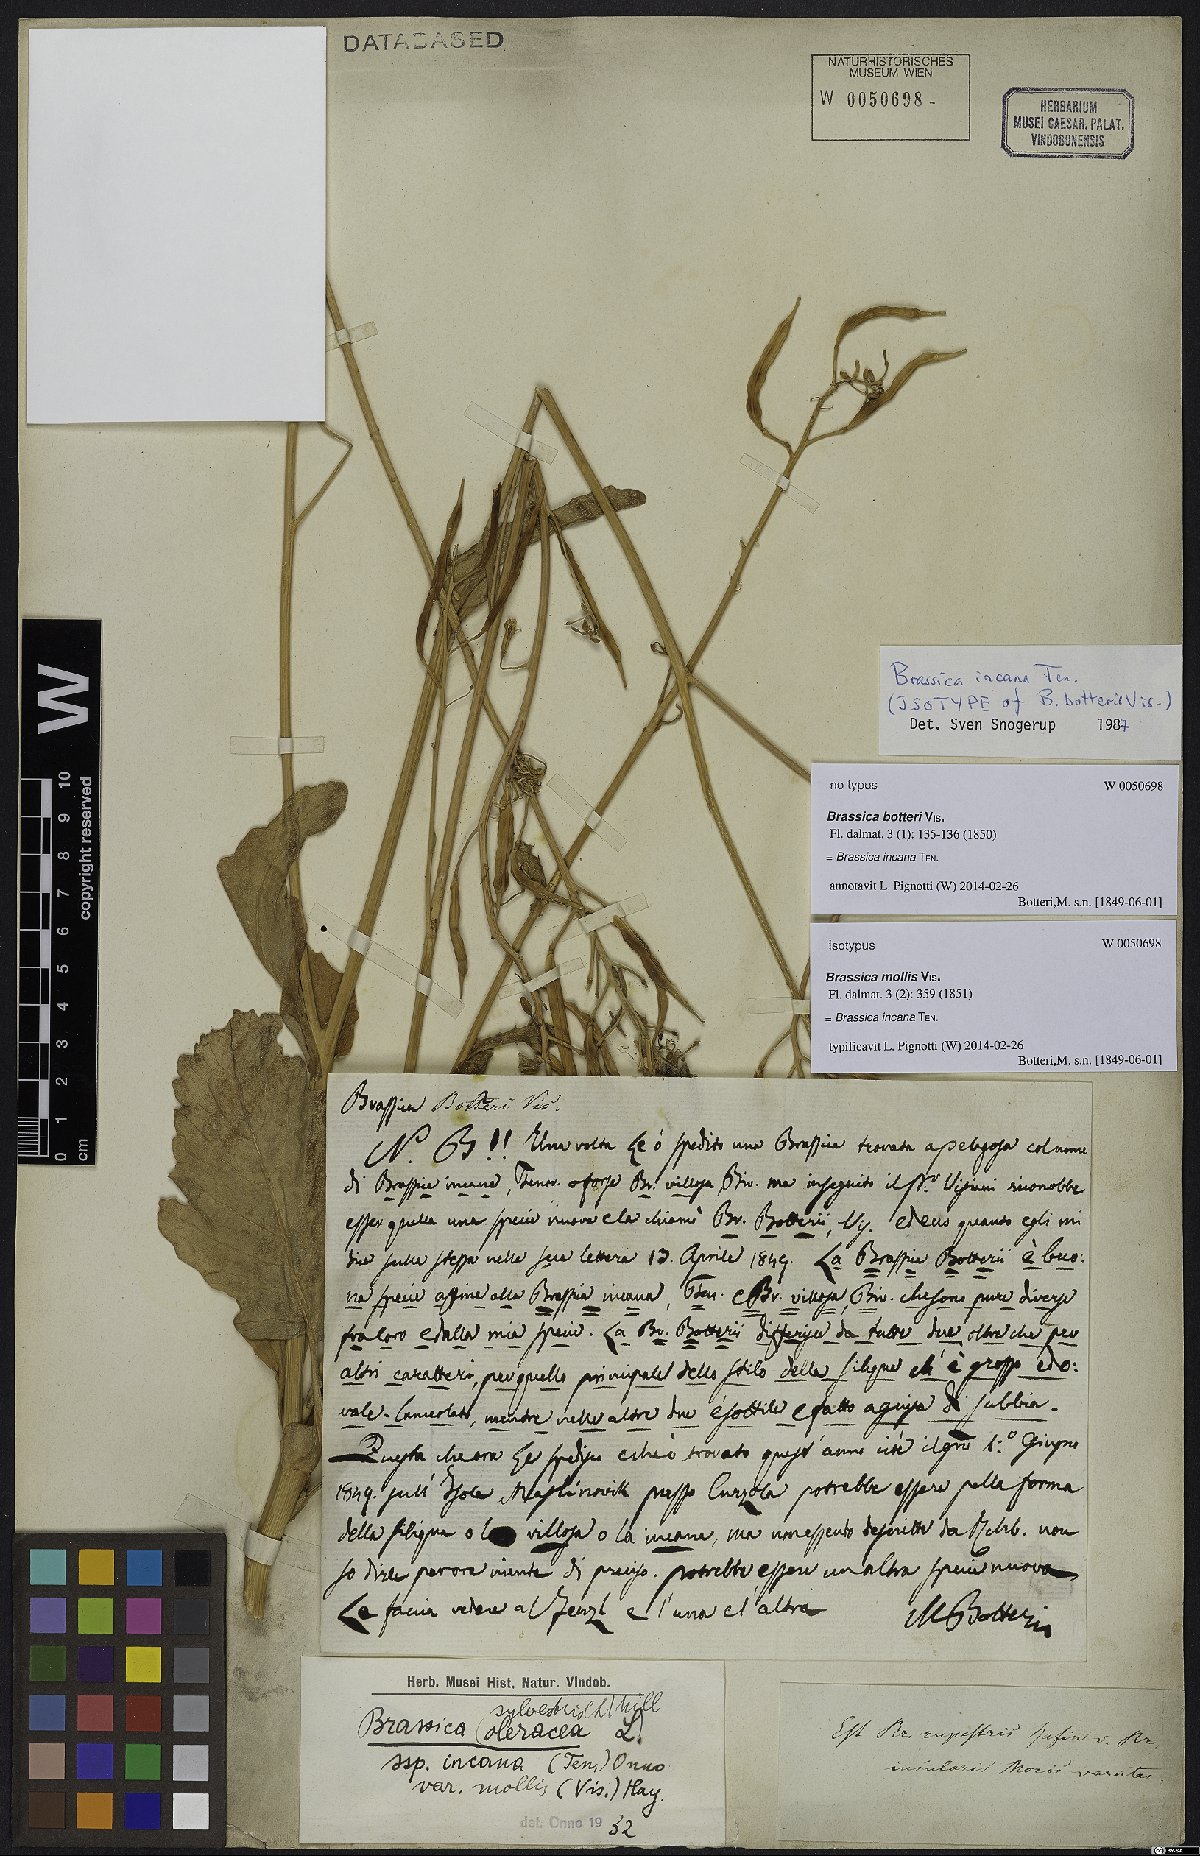 DATABASED
NATURHISTORISCHES
MUSEUM WIEN
W 0050698 -
HERBARIUM
MUSEI CAESAR. PALAT.
VINDOBONENSIS
Brassica incana Ten.
(ISOTYPE of B. botterii Vis.)
Det. Sven Snogerup 1987
no typus W 0050698
Brassica botteri Vis.
Fl. dalmat. 3 (1): 135-136 (1850)
= Brassica incana Ten.
annotavit L. Pignotti (W) 2014-02-26
Botteri,M. s.n. [1849-06-01]
isotypus W 0050698
Brassica mollis Vis.
Fl. dalmat. 3 (2): 359 (1851)
= Brassica incana Ten.
typificavit L. Pignotti (W) 2014-02-26
Botteri,M. s.n. [1849-06-01]
W
0 1 2 3 4 5 6 7 8 9 10
cm
copyright reserved
Brassica Botteri Vis.
N. B!! Una volta Le ò spedito una Brassica trovata a Pelagosa col nome
di Brassica incana, Tenor. o forse Br. villosa, Biv. ma in seguito il Sr. Visiani riconobbe
esser quella una specie nuova e la chiamò Br. Botterii, Vis. ed ecco quanto egli mi
dice sulla stessa nella sua lettera 13. Aprile 1849. La Brassica Botterii è buo:
na specie affine alla Brassica incana, Ten. e Br. villosa, Biv. che sono pure diverse
fra loro e dalla mia specie. La Br. Botterii differisce da tutte due oltre che per
altri caratteri, per quello principale dello stilo della siliqua ch' è grosso ed o:
vale-lanceolato, mentre nelle altre due è sottile e fatto a guisa di subbia.
Questa che ora Le spedisco e che ò trovato quest' anno cioè il gno 1.º Giugno
1849. sull' Isola Majsinovik presso Curzola potrebbe essere nella forma
della siliqua o la villosa o la incana, ma non essendo descritta da Rchb. non
so dirle per ora niente di preciso. potrebbe essere un altra specie nuova
Le faccia vedere al Fenzl e l'una e l'altra M Botteri
Herb. Musei Hist. Natur. Vindob.
sylvestris (L.) Mill
Brassica (oleracea L.)
ssp. incana (Ten.) Onno
var. mollis (Vis.) Hay.
det. Onno 1932
Est Br. rupestris
insularis Moris varietas.